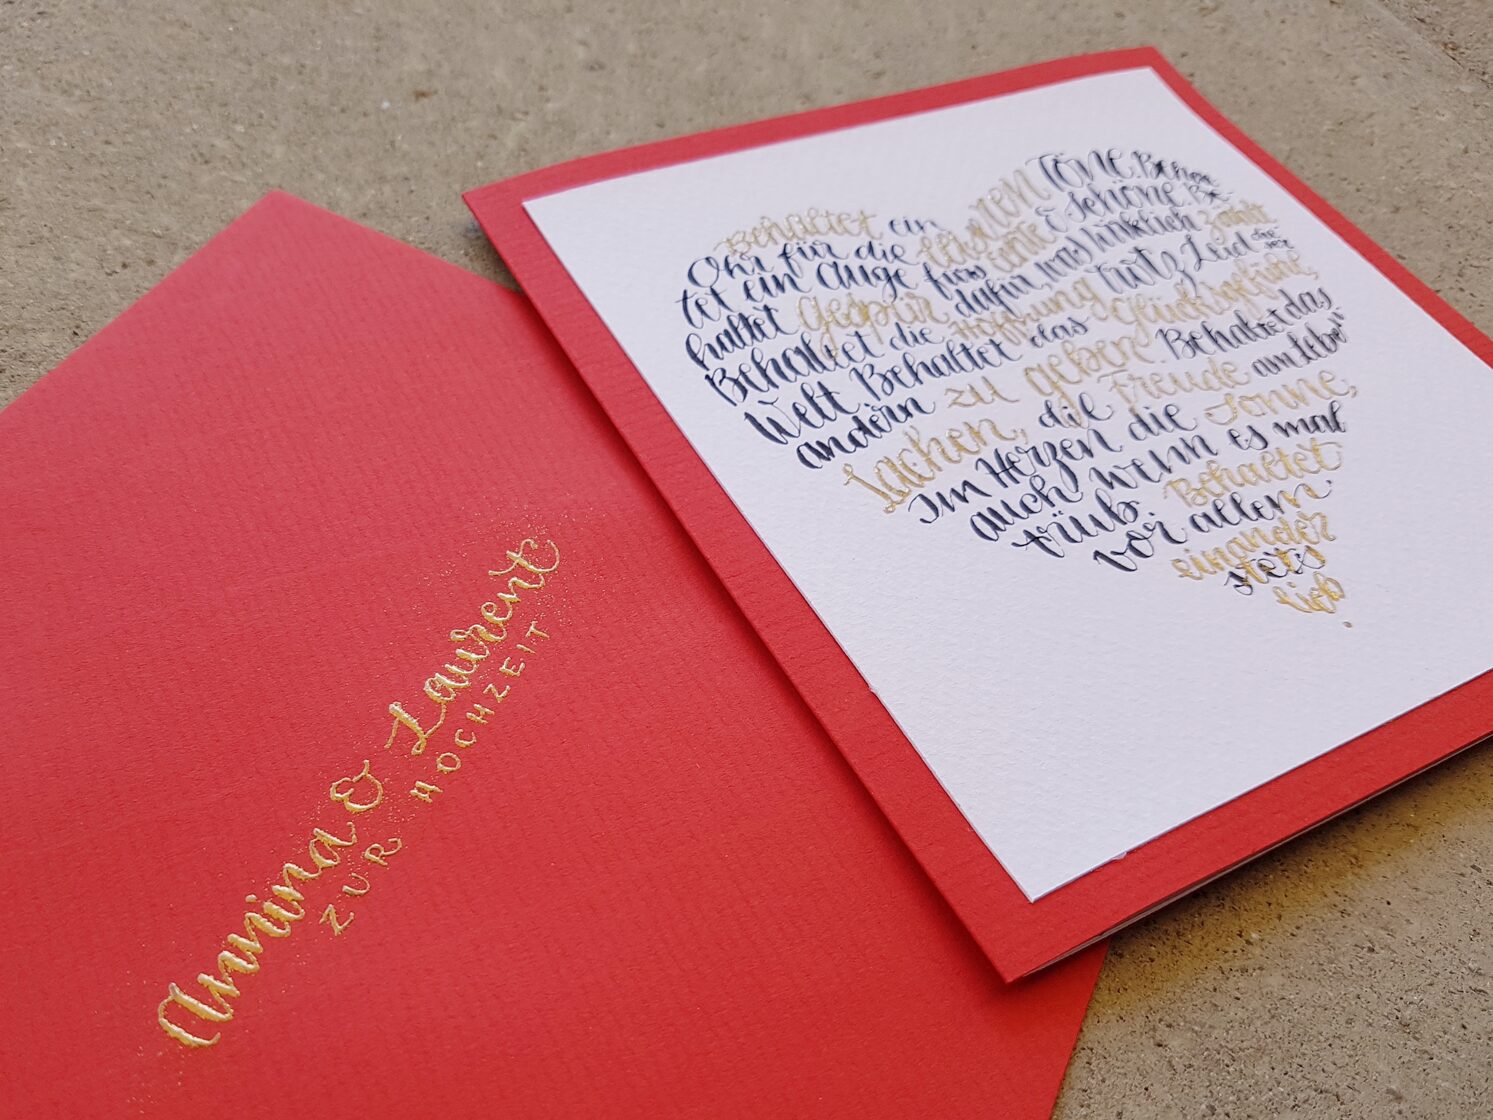 Annina & Laurent
ZUR HOCHZEIT
Behaltet ein leisten Töne. Behal
Ohr für die Ernte & Schöne. Be
tet ein Auge fürs
haltet Gespür dafür, was wirklich zählt
Behaltet die Hoffnung trotz Leid die der
Welt. Behaltet das Glücksgefühl,
andern zu geben. Behaltet das
Lachen, die Freude am Leb'n
Im Herzen die Sonne,
auch wenn es mal
trüb. Behaltet
vor allem
einander
stets
lieb.